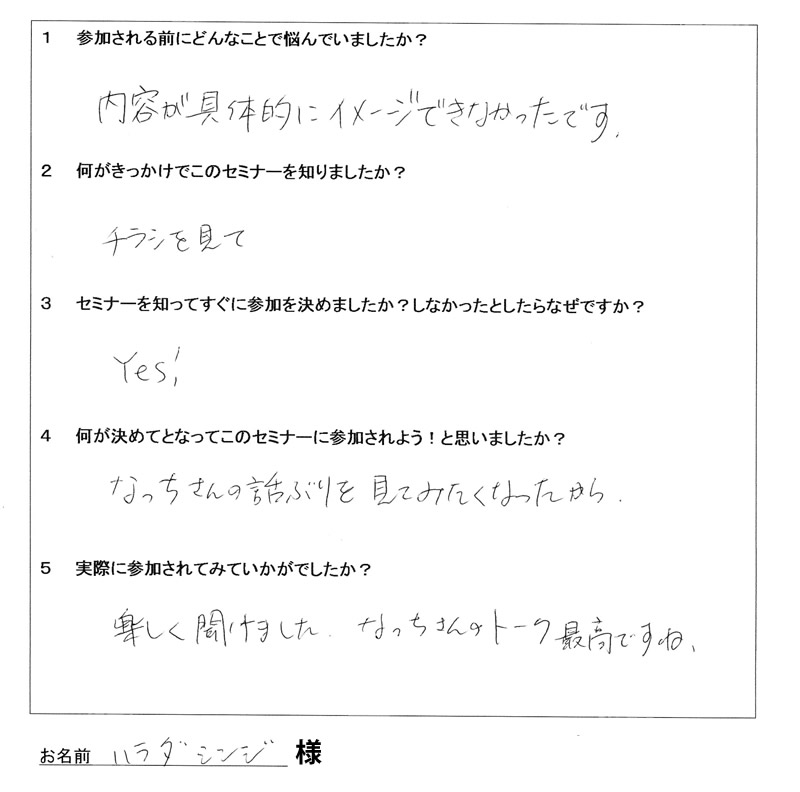 1 参加される前にどんなことで悩んでいましたか？
内容が具体的にイメージできなかったです.
2 何がきっかけでこのセミナーを知りましたか？
チラシを見て
3 セミナーを知ってすぐに参加を決めましたか？しなかったとしたらなぜですか？
Yes!
4 何が決めてとなってこのセミナーに参加されよう！と思いましたか？
なっちさんの話ぶりを見てみたくなったから.
5 実際に参加されてみていかがでしたか？
楽しく聞けました. なっちさんのトーク最高ですね、
お名前 ハラダシンジ 様